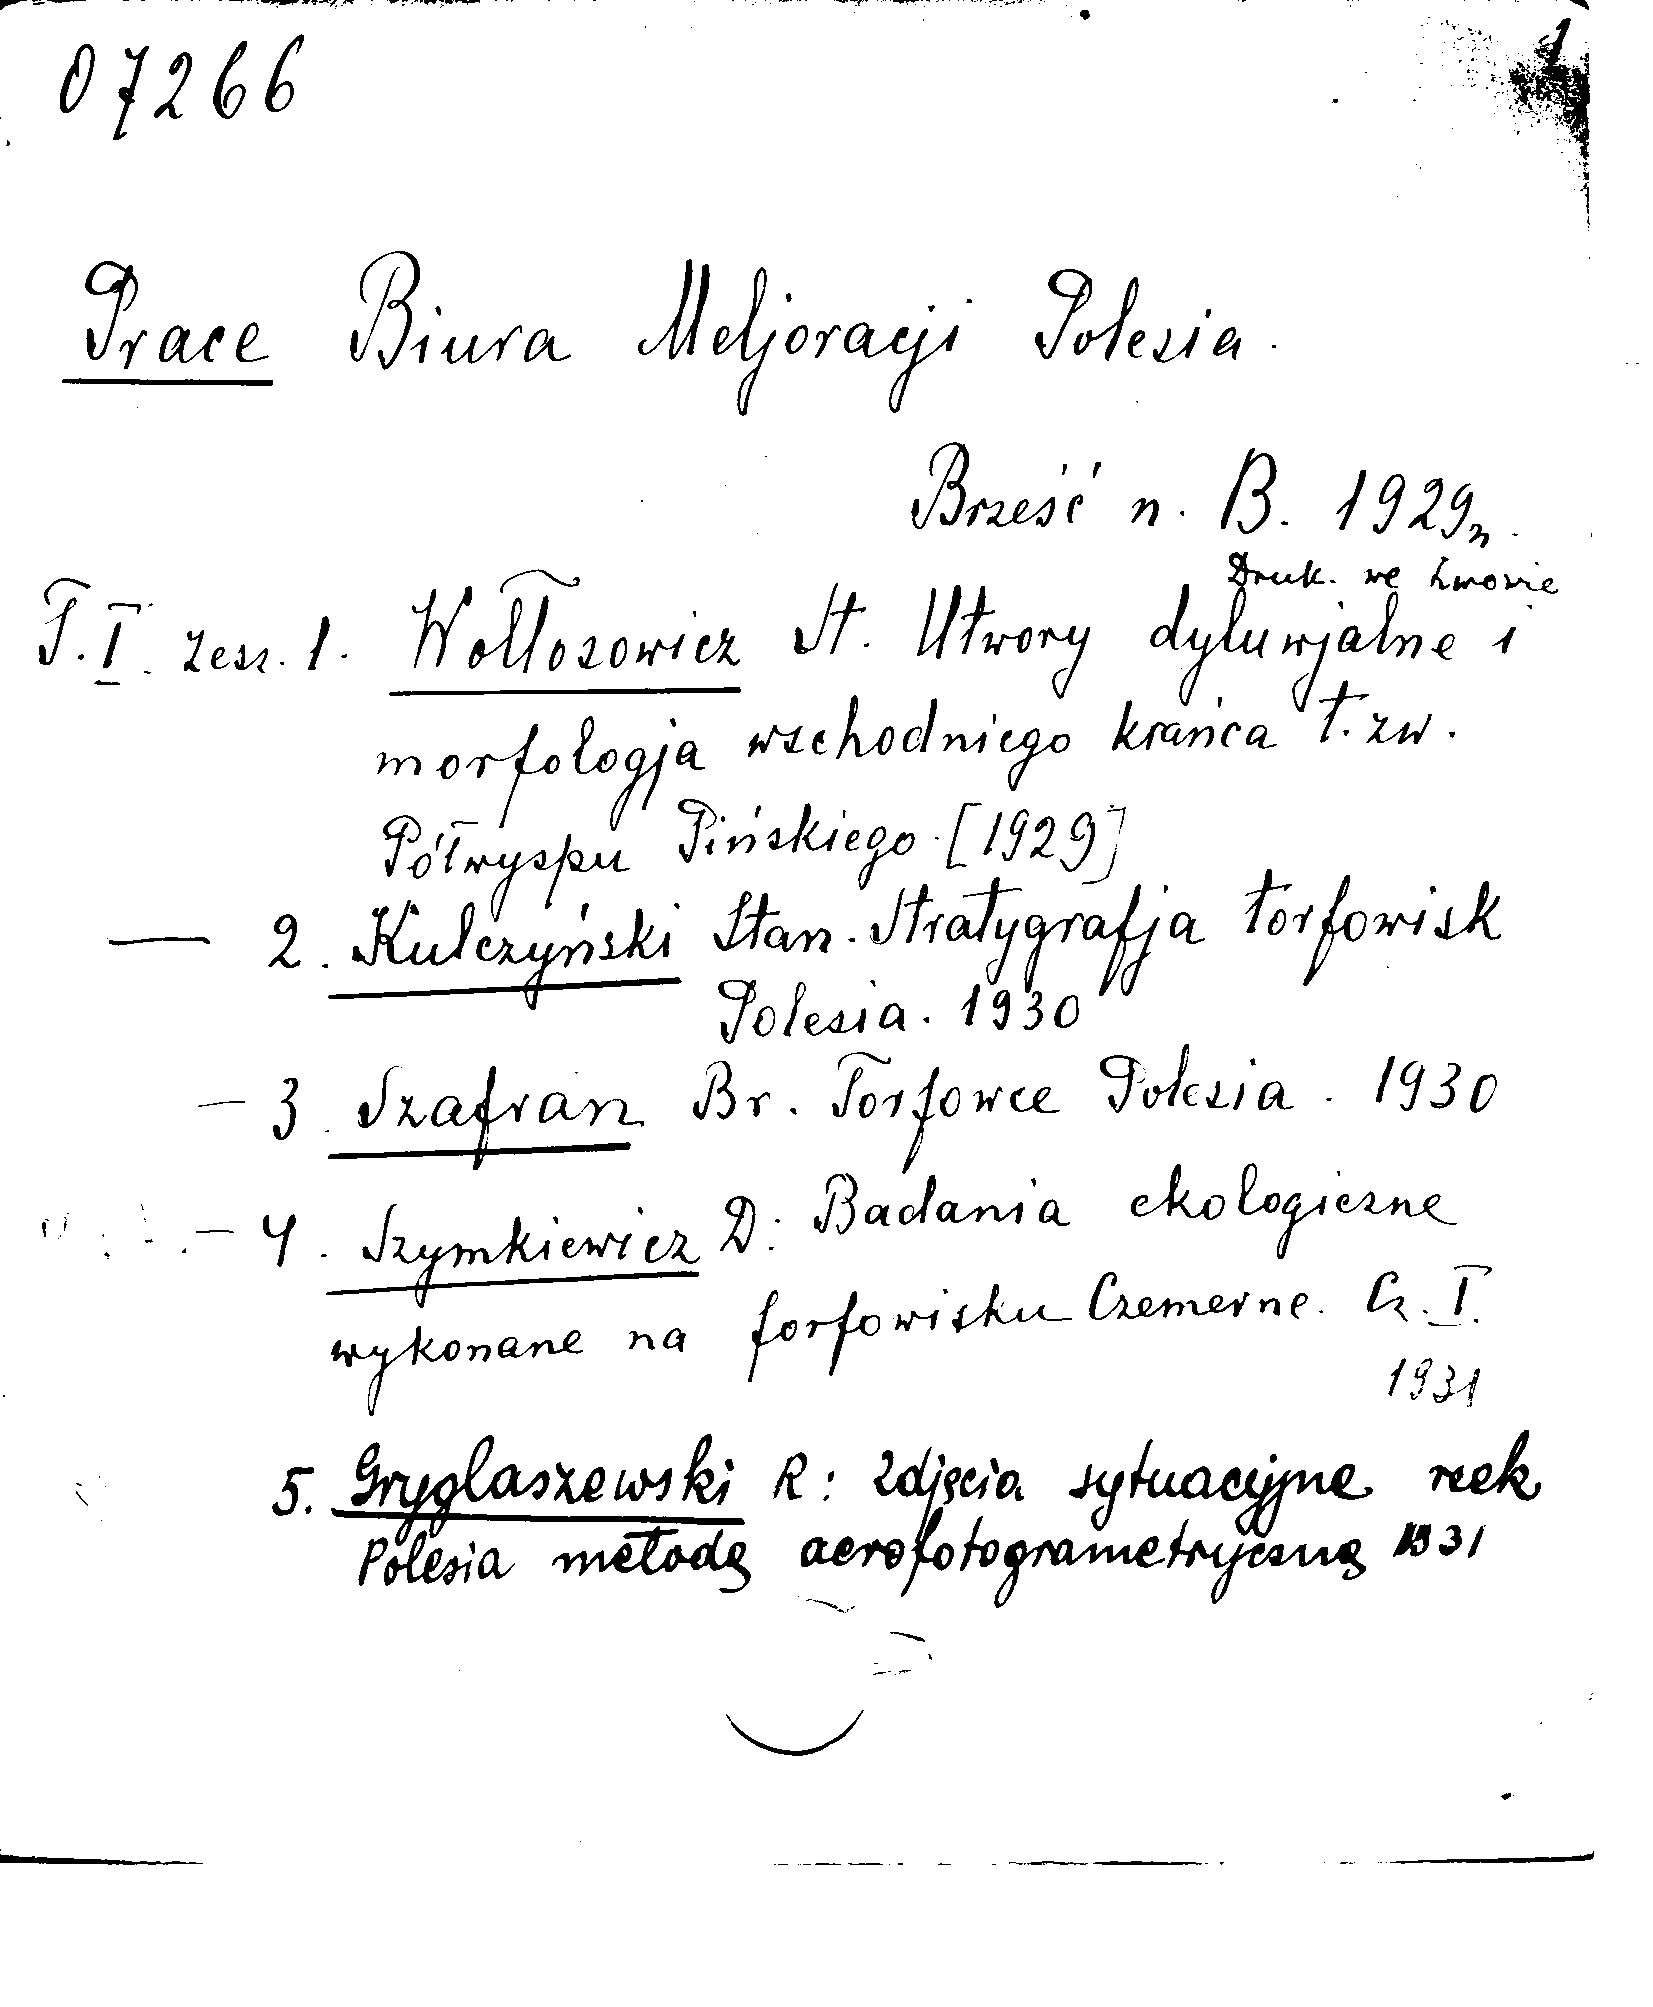 1
07266
Prace Biura Meljoracji Polesia.
Brześć n. B. 1929n.
Druk. we Lwowie
T. I. zesz. 1. Wołłosowicz St. Utwory dyluwjalne i
morfologja wschodniego krańca t. zw.
Półwyspu Pińskiego. [1929]
— 2. Kulczyński Stan. Stratygrafja torfowisk
Polesia. 1930
— 3. Szafran Br. Torfowce Polesia. 1930
— 4. Szymkiewicz D: Badania ekologiczne
wykonane na torfowisku Czemerne. Cz. I.
1931
5. Gryglaszewski R: Zdjęcia sytuacyjne rzek
Polesia metodą aerofotogrametryczną 1931